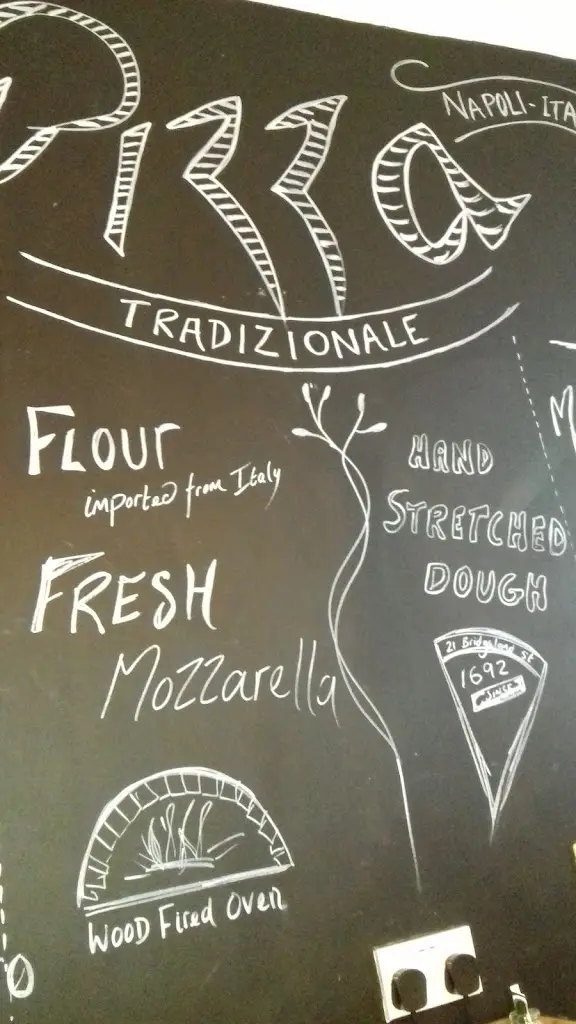 Pizza
NAPOLI-ITA
TRADIZIONALE
FLOUR
imported from Italy
FRESH
Mozzarella
HAND
STRETCHED
DOUGH
21 Bridgeland st
1692
SINSE
WOOD Fired Oven
M
O